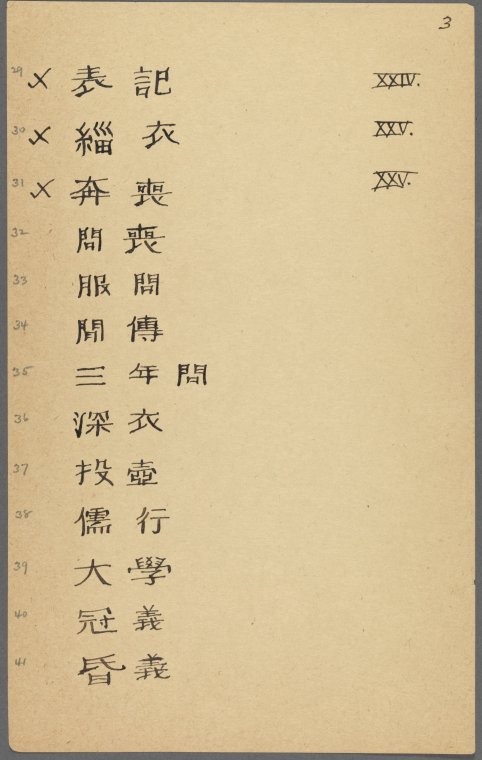 3
29 × 表 記 XXIV.
30 × 緇 衣 XXV.
31 × 奔 喪 XXV.
32 問 喪
33 服 問
34 間 傳
35 三 年 問
36 深 衣
37 投 壺
38 儒 行
39 大 學
40 冠 義
41 昏 義